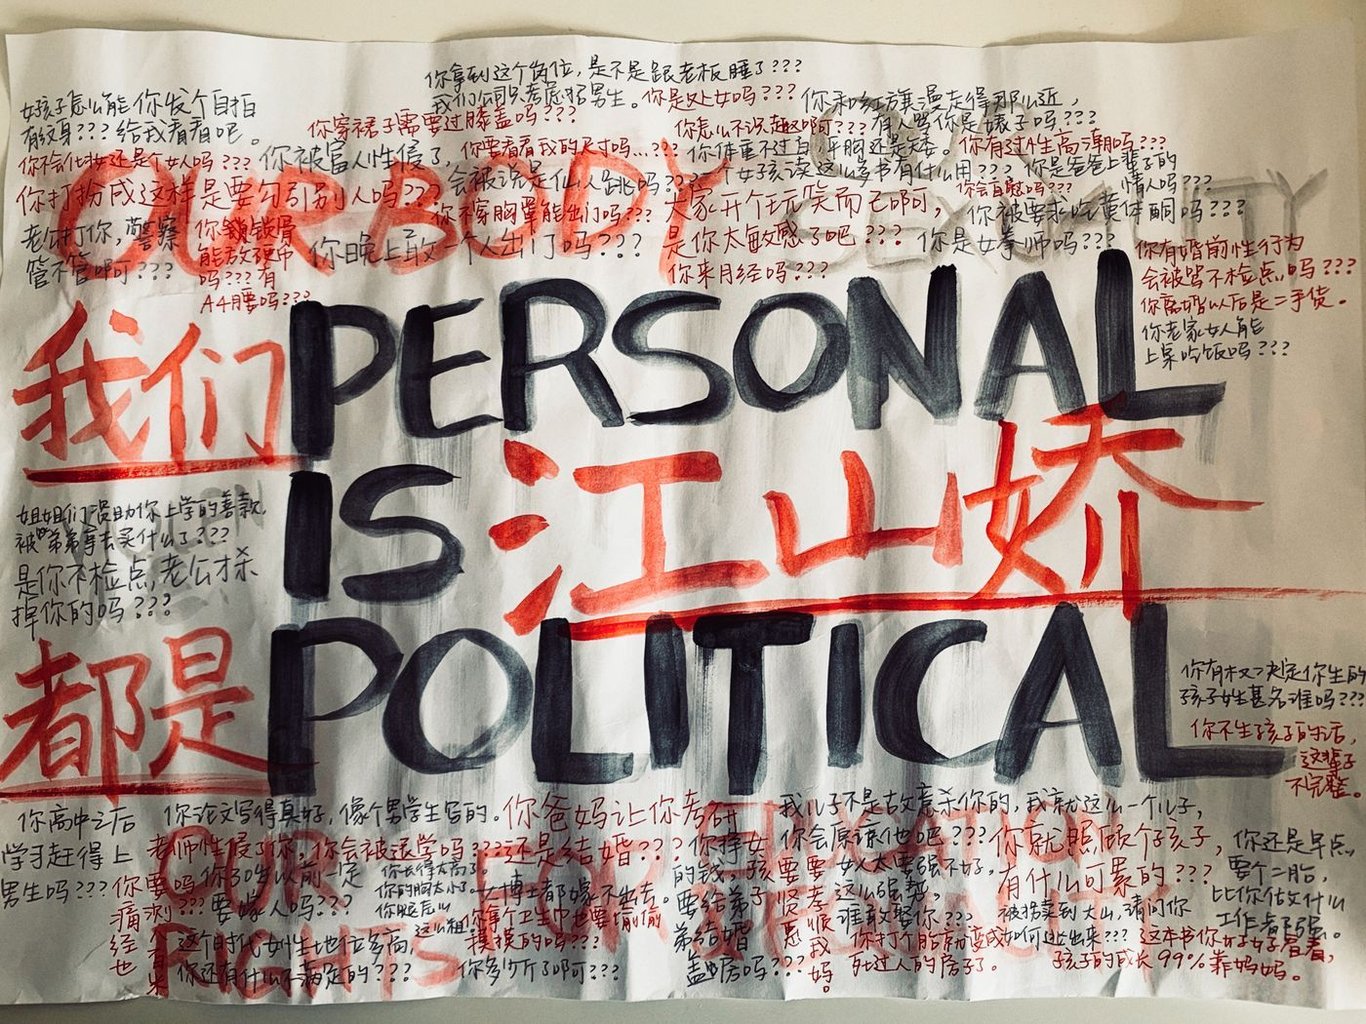 你拿到这个岗位，是不是跟老板睡了???
我们公司只考虑招男生。你是处女吗???
好孩子怎么能你发个自拍
有纹身???给我看看吧。
你穿裙子需要过膝盖吗???
你和红旗漫走得那么近，
有人骂你是婊子吗???
你怎么不说赵啊???
你会化妆还是个女人吗???
你被富人性侵了，
会被说是仙人跳吗???
你要看看我的尺寸吗...???
你体重不过百
平胸还是太委。
你有过高潮吗???
女孩读这么多书有什么用???
你是爸爸上辈子的
情人吗???
你会自慰吗???
你打扮成这样是要勾引别人吗???
你不穿胸罩能出门吗???
大家开个玩笑而已啊，
是你太敏感了吧???
你被要求吃黄体酮吗???
老公打你，警察
管不管啊???
你锁骨
能放硬币
吗???有
A4腰吗???
你晚上敢一个人出门吗???
你是女拳师吗???
你来月经吗???
你有婚前性行为
会被骂不检点吗???
你离婚以后是二手货。
你老家女人能
上桌吃饭吗???
OUR BODY
OUR
SEXUALITY
我们
PERSONAL
IS
江山娇
姐姐们资助你上学的善款，
被弟弟拿去买什么了???
是你不检点，老公才杀
掉你的吗???
都是
POLITICAL
你有权决定你生的
孩子姓甚名谁吗???
你不生孩子的话，
这辈子
不完整。
你高中之后
学习赶得上
男生吗???
你论文写得真好，像个男学生写的。
你爸妈让你考研
还是结婚???
老师性侵了你，你会被退学吗???
你要吗
你30岁以前一定
要嫁人吗???
你长得太高了。
你的胸太小了。
你腿怎么
这么粗。
女博士都嫁不出去。
你拿个卫生巾也要偷偷
摸摸的吗???
这个时代女性地位多高，
你还有什么不满足的???
你多少斤了啊???
你挣
的钱
要给弟弟
结婚
盖房吗???
女孩子要
贤
孝
顺
我儿子不是故意杀你的，我就这么一个儿子，
你会原谅他吧???
女人太要强不好，
这么强势，
谁敢娶你???
你打个胎就变成
死过人的房子了。
你就照顾个孩子，
有什么可累的???
被拐卖到大山，请问你
如何逃出来???
这本书你好好看看，
孩子的成长99%靠妈妈。
你还是早点
要个二胎，
比你做什么
工作都强。
OUR
RIGHTS
FOR
EDUCATION